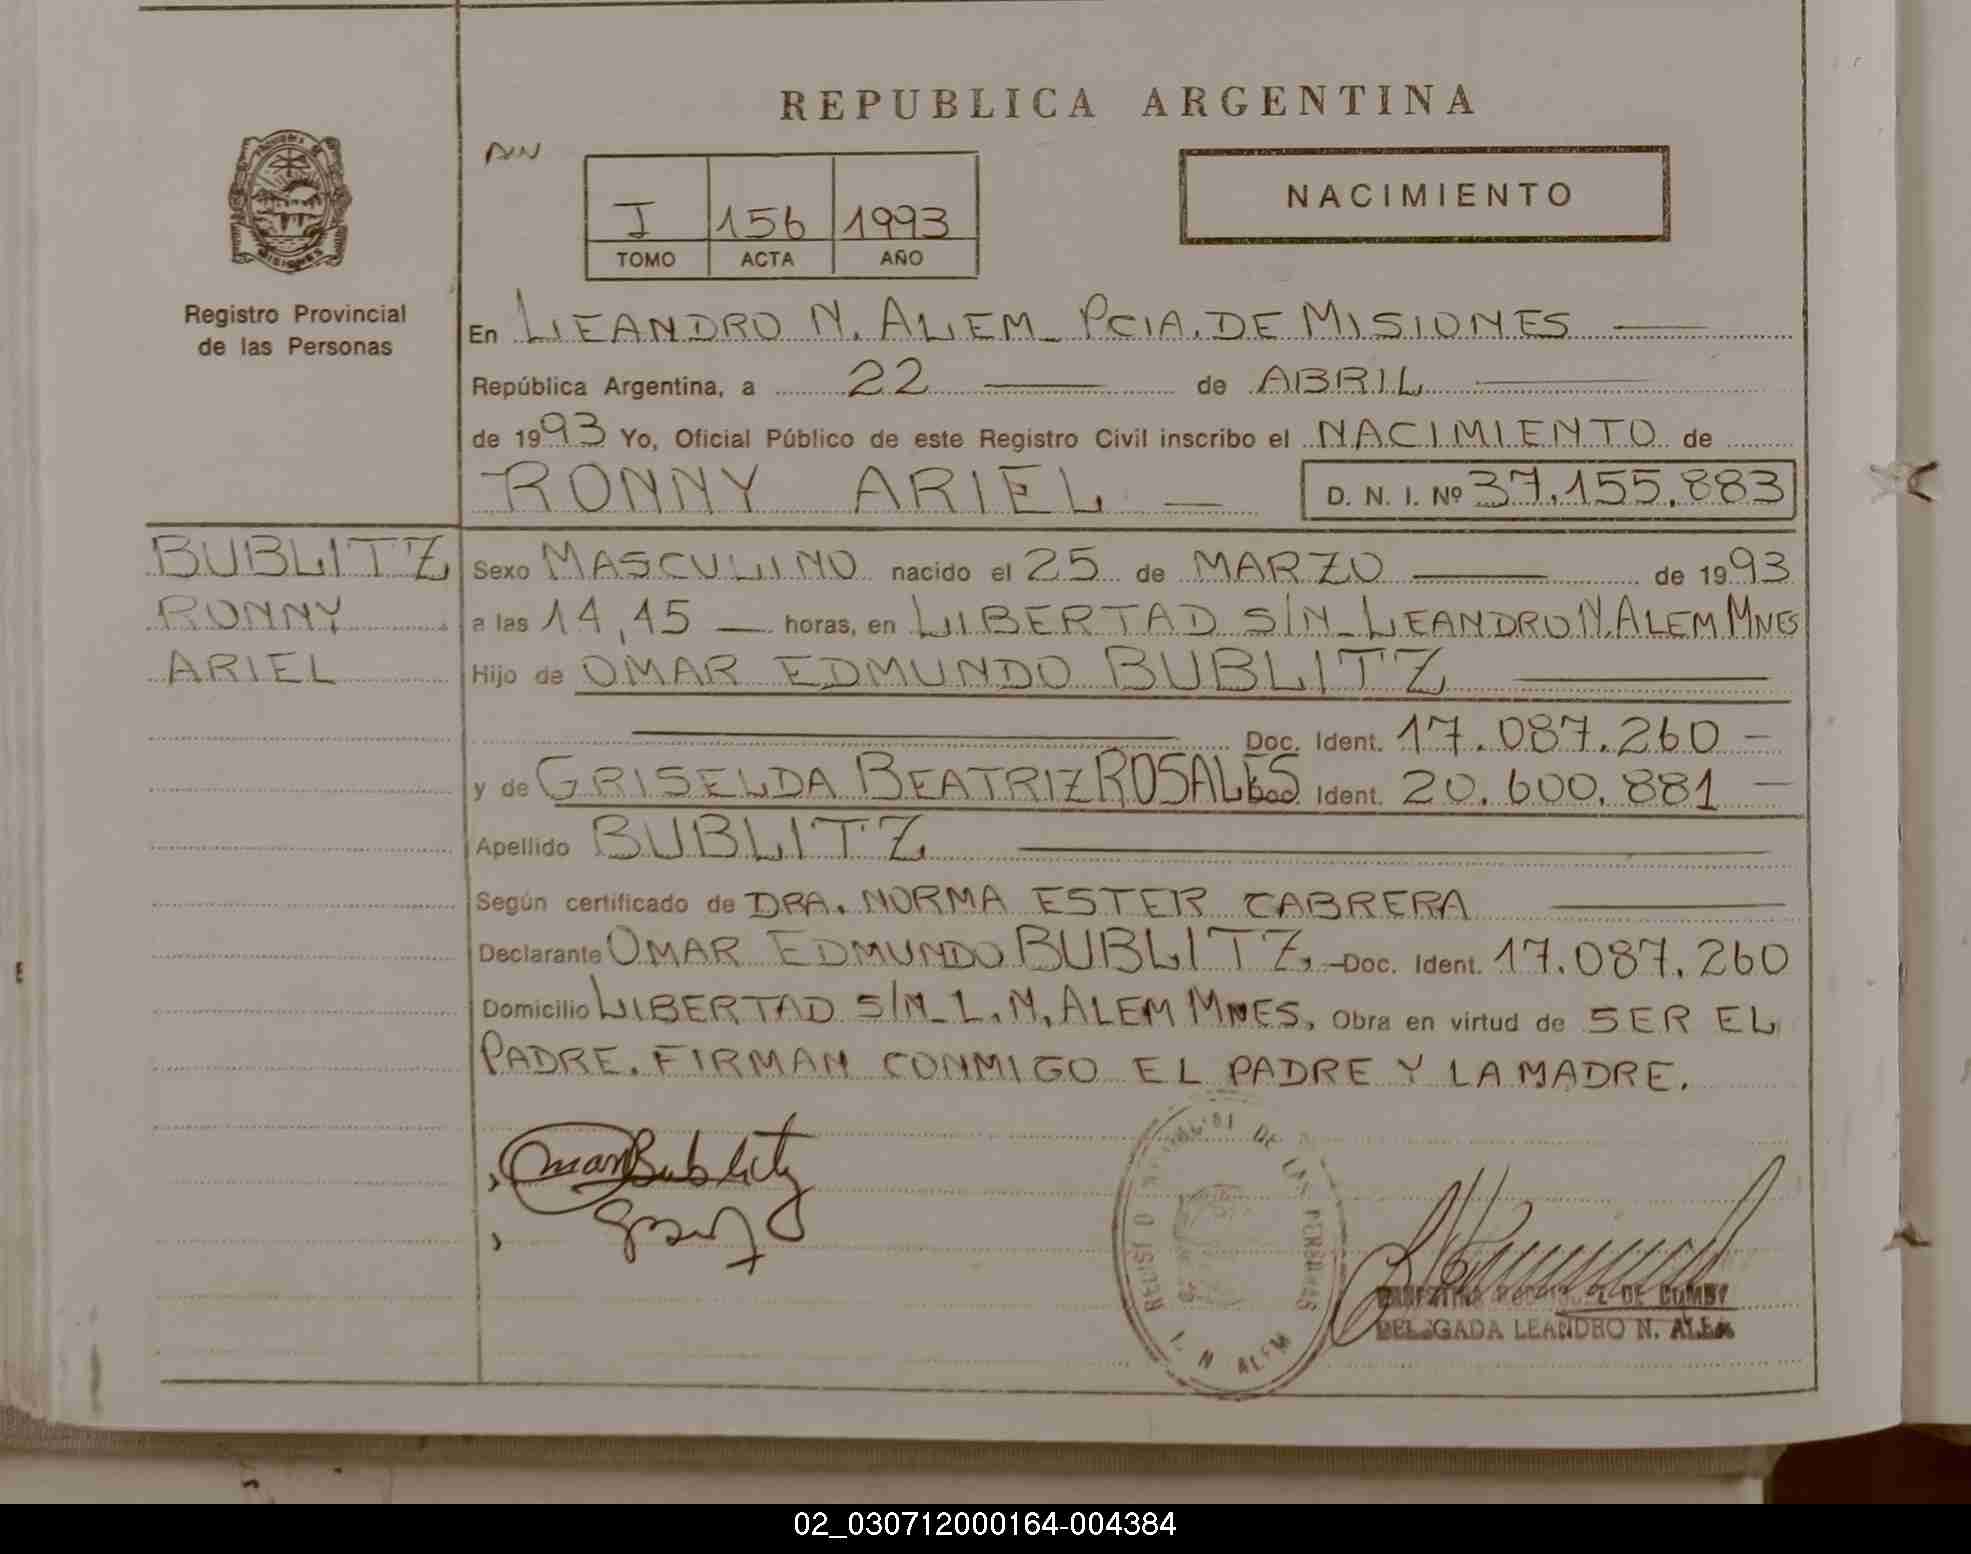 REPUBLICA ARGENTINA
NACIMIENTO
I 156 1993
TOMO ACTA AÑO
MISIONES
Registro Provincial
de las Personas
En LEANDRO N. ALEM_ PCIA. DE MISIONES
República Argentina, a 22 de ABRIL
de 1993 Yo, Oficial Público de este Registro Civil inscribo el NACIMIENTO de
RONNY ARIEL D. N. I. Nº 37.155.883
BUBLITZ
RONNY
ARIEL
Sexo MASCULINO nacido el 25 de MARZO de 1993
a las 14,45 horas, en LIBERTAD S/N_ LEANDRO N. ALEM MNES
Hijo de OMAR EDMUNDO BUBLITZ
Doc. Ident. 17.087.260
y de GRISELDA BEATRIZ ROSALES Doc. Ident. 20.600.881
Apellido BUBLITZ
Según certificado de DRA. NORMA ESTER CABRERA
Declarante OMAR EDMUNDO BUBLITZ, Doc. Ident. 17.087.260
Domicilio LIBERTAD S/N_ L. N. ALEM MNES. Obra en virtud de SER EL
PADRE. FIRMAN CONMIGO EL PADRE Y LA MADRE.
Omar Bublitz
DE LAS PERSONAS
L. N. ALEM
DE COMBY
DELEGADA LEANDRO N. ALEM
02_030712000164-004384